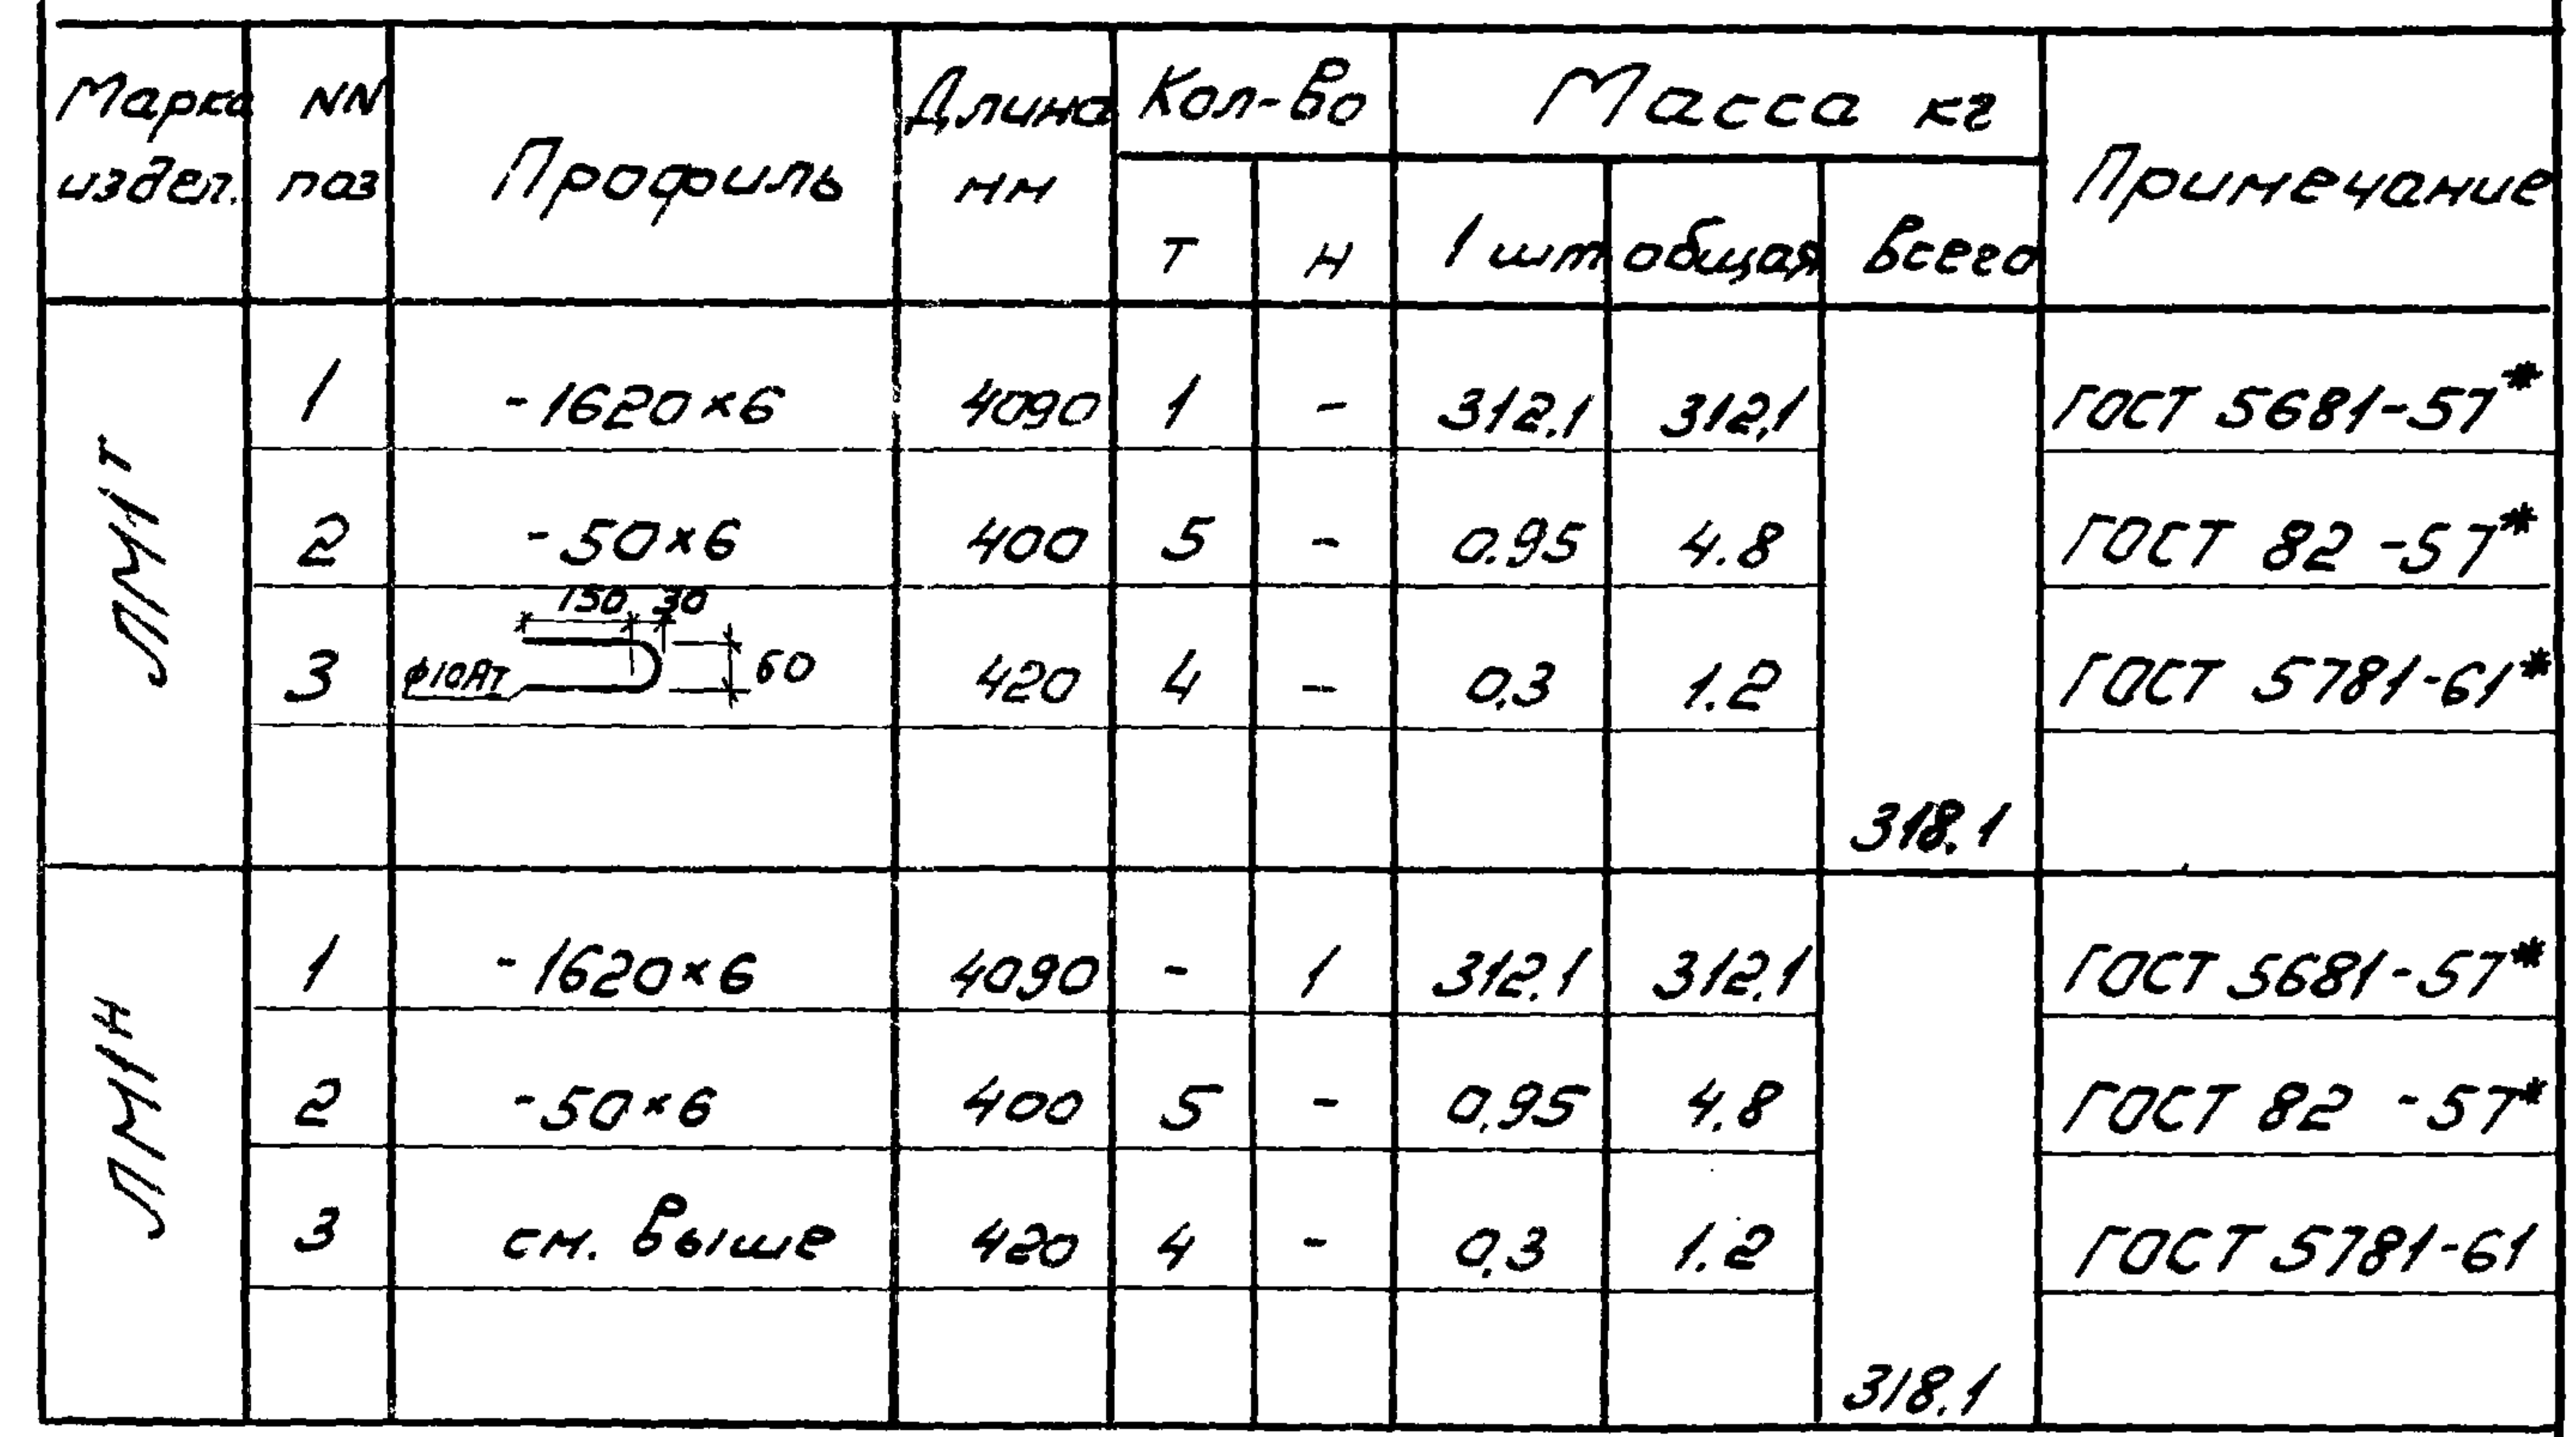 Марка издел. NN поз Профиль Длина мм Кол-во Масса кг Примечание
т н 1 шт общая всего
ЛМ1т
1 -1620×6 4090 1 - 312.1 312,1 ГОСТ 5681-57*
2 -50×6 400 5 - 0.95 4.8 ГОСТ 82 -57*
150 30
3 ф10АТ 60 420 4 - 0,3 1.2 ГОСТ 5781-61*
318.1
ЛМ1н
1 -1620×6 4090 - 1 312.1 312.1 ГОСТ 5681-57*
2 -50×6 400 5 - 0,95 4.8 ГОСТ 82 -57*
3 см. выше 420 4 - 0,3 1.2 ГОСТ 5781-61
318.1